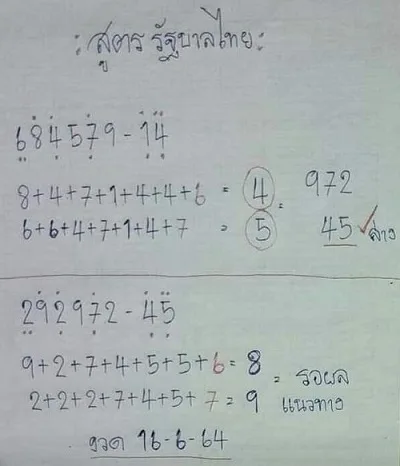 : สูตร รัฐบาลไทย :
684579-14
8+4+7+1+4+4+6 = 4 = 972
6+6+4+7+1+4+7 = 5 45 ล่าง
292972-45
9+2+7+4+5+5+6=8
2+2+2+7+4+5+7=9 = รอผล แนวทาง
งวด 16-6-64